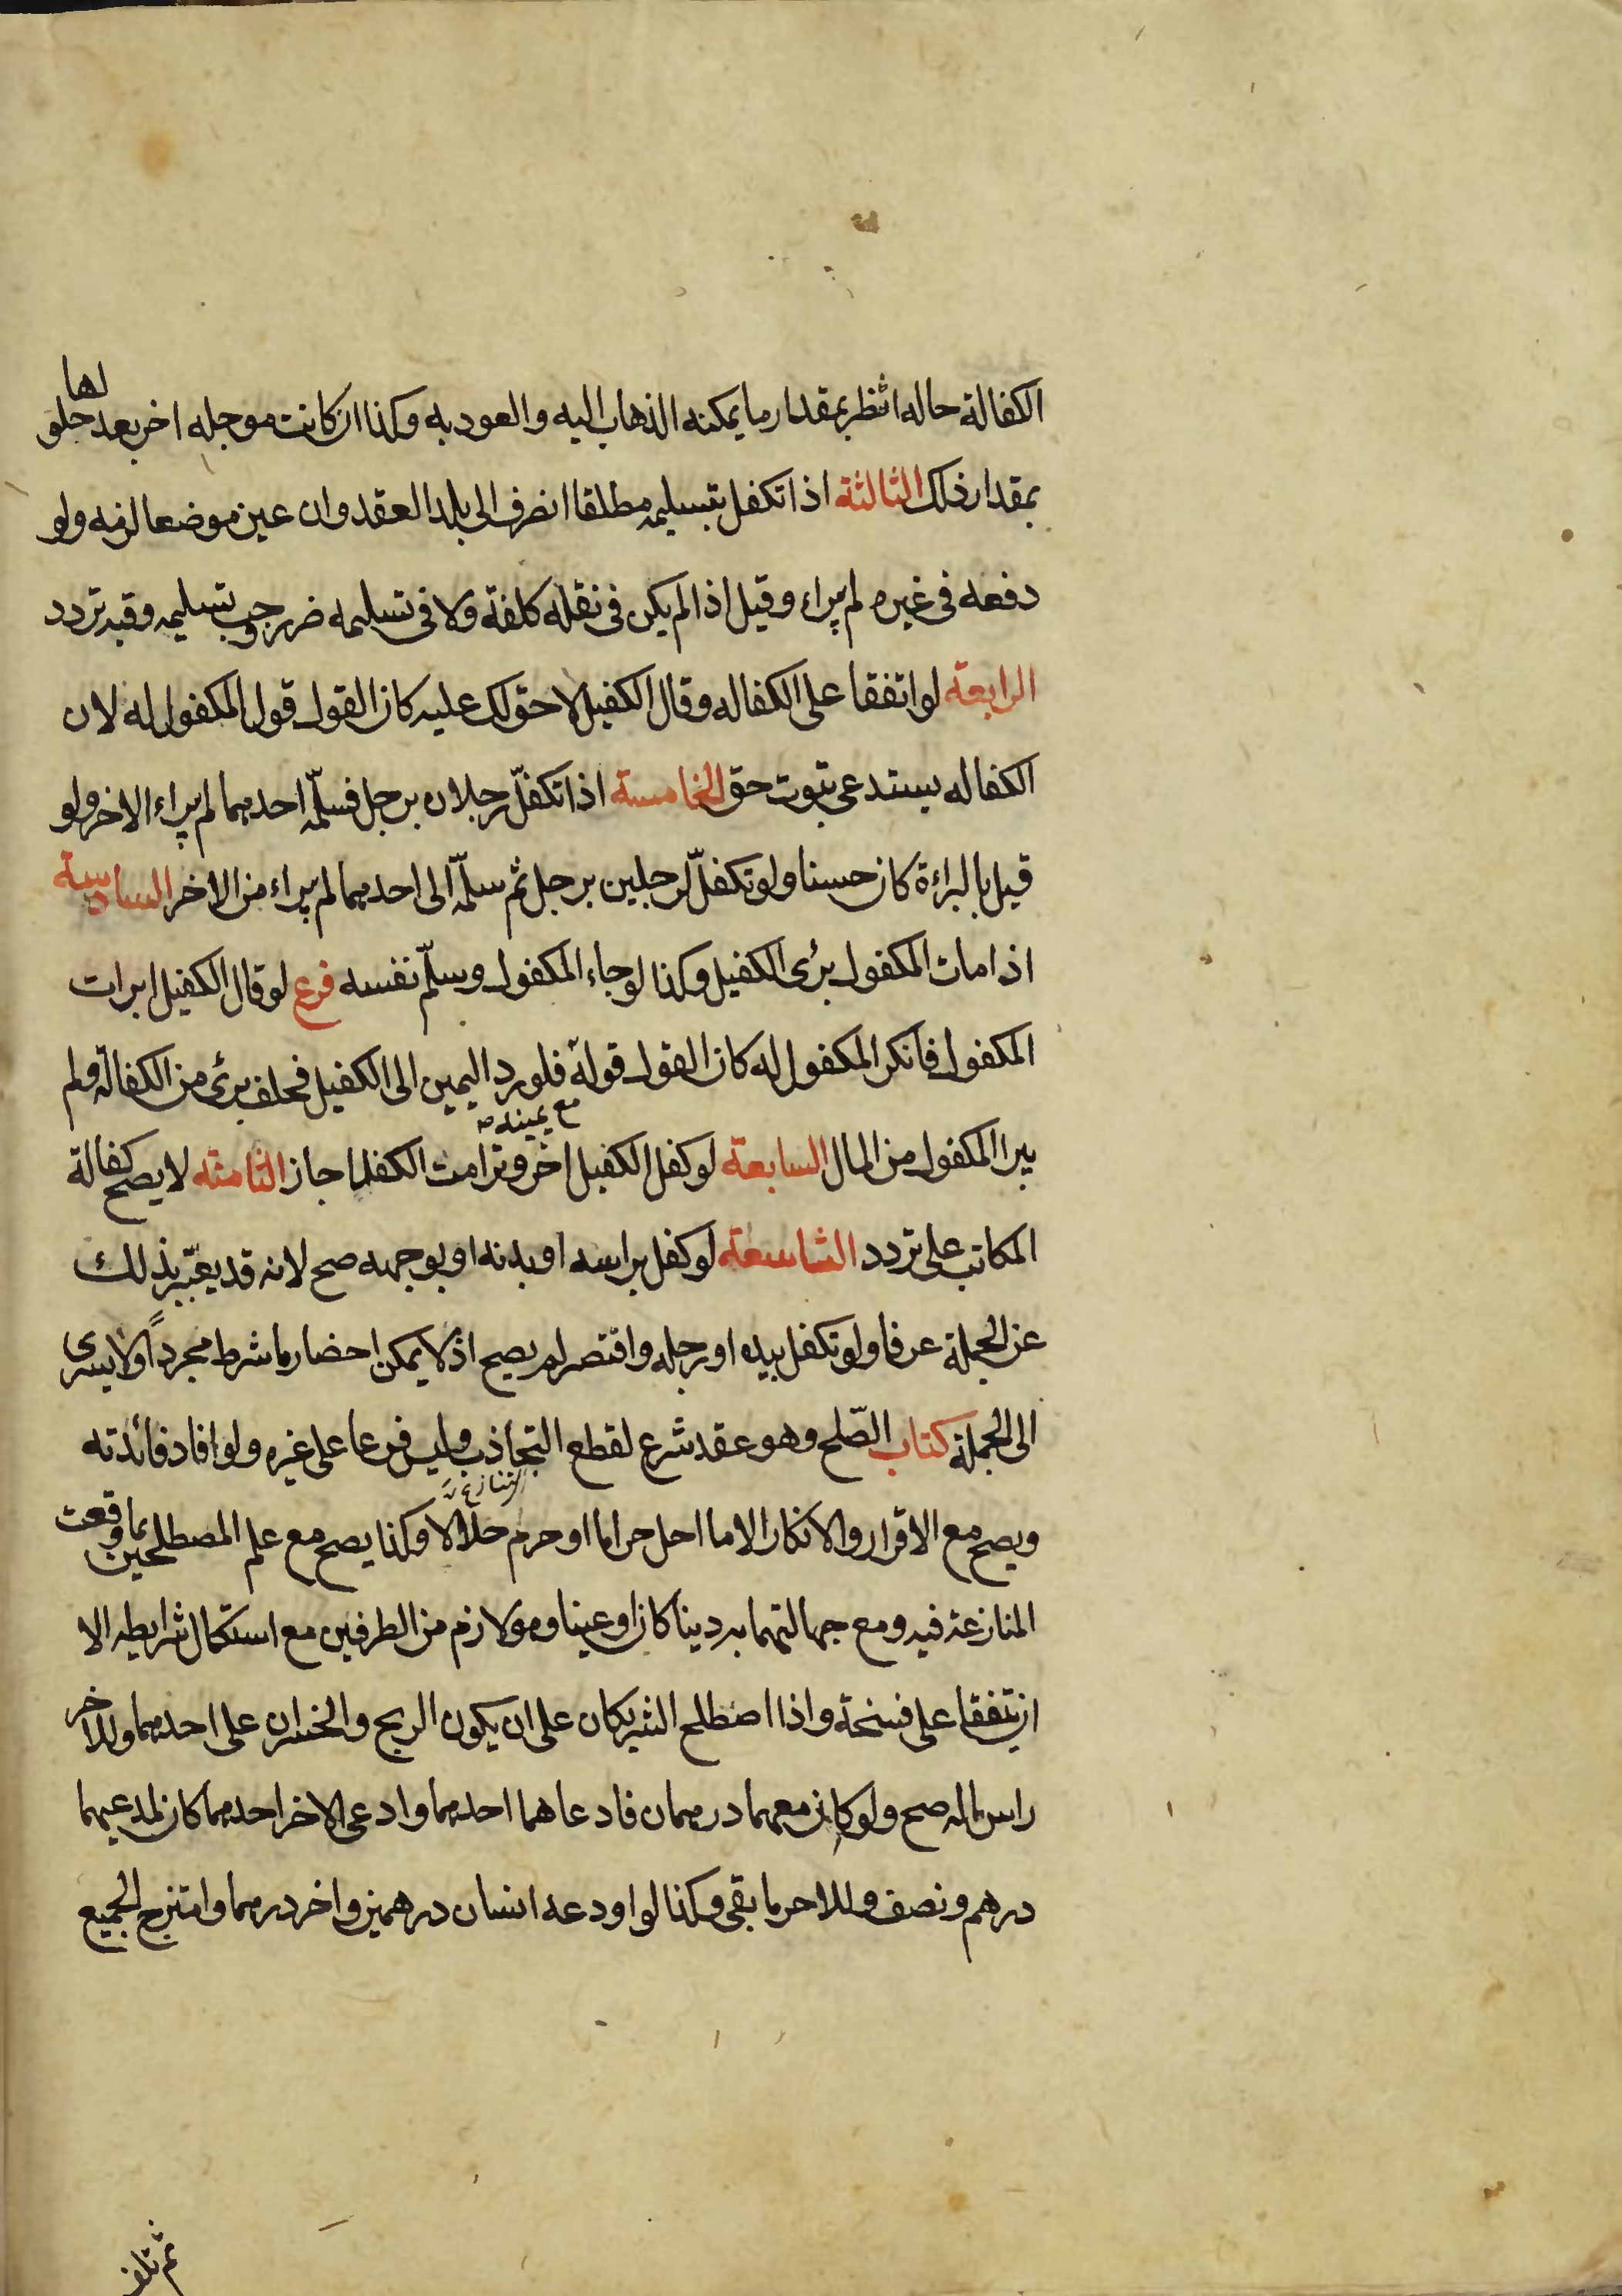 الكفالة حاله انظر بمقدار ما يمكنه الذهاب اليه والعود به وكذا ان كانت موجله اخر بعد حلولها
بمقدار ذلك الثالثة اذا تكفل بتسليمه مطلقا انصرف الى بلد العقد وان عين موضعا لزمه ولو
دفعه فى غيره لم يبراء وقيل اذا لم يكن فى نقله كلفة ولا فى تسليمه ضرر وجب تسليمه وفيه تردد
الرابعة لو اتفقا على الكفاله وقال الكفيل لا حق لك عليه كان القول قول المكفول له لان
الكفاله يستدعى ثبوت حق الخامسة اذا تكفّل رجلان برجل فسلّمه احدهما لم يبراء الاخر ولو
قيل بالبراءة كان حسنا ولو تكفلّ لرجلين برجل ثم سلمّه الى احدهما لم يبراء من الاخر السادسة
اذا مات المكفول برئ الكفيل وكذا لو جاء المكفول وسلّم نفسه فرع لو قال الكفيل ابرات
المكفول فانكر المكفول له كان القول قوله فلو رد اليمين الى الكفيل فحلف برئ من الكفالة ولم
مع يمينه صه
يبرا المكفول من المال السابعة لو كفل الكفيل اخر وترامت الكفلا جاز الثامنه لا يصح كفالة
المكاتب على تردد التاسعة لو كفل براسه او بدنه او بوجهه صح لانه قد يعبّر بذلك
عن الجملة عرفا ولو تكفل بيده او برجله واقتصر لم يصح اذ لا يمكن احضار ما شرط مجرداً ولا يسرى
الى الجملة كتاب الصّلح وهو عقد شرع لقطع التجاذب وليس فرعا على غيره ولو افاد فائدته
التنازع
ويصح مع الاقرار والانكار الا ما احل حراما او حرم حلالا وكذا يصح مع علم المصطلحين بما وقعت
المنازعة فيه ومع جهالتهما به دينا كان او عينا وهو لازم من الطرفين مع استكمال شرايطه الا
ان يتفقا على فسخة واذا اصطلح الشريكان على ان يكون الربح والخسران على احدهما وللاخر
راس ماله صح ولو كان معهما درهمان فادعاهما احدهما وادعى الاخر احدهما كان لمدعيهما
درهم ونصف وللاحر ما بقى وكذا لو اودعه انسان درهمين واخر درهما وامتزج الجميع
ثم تلف